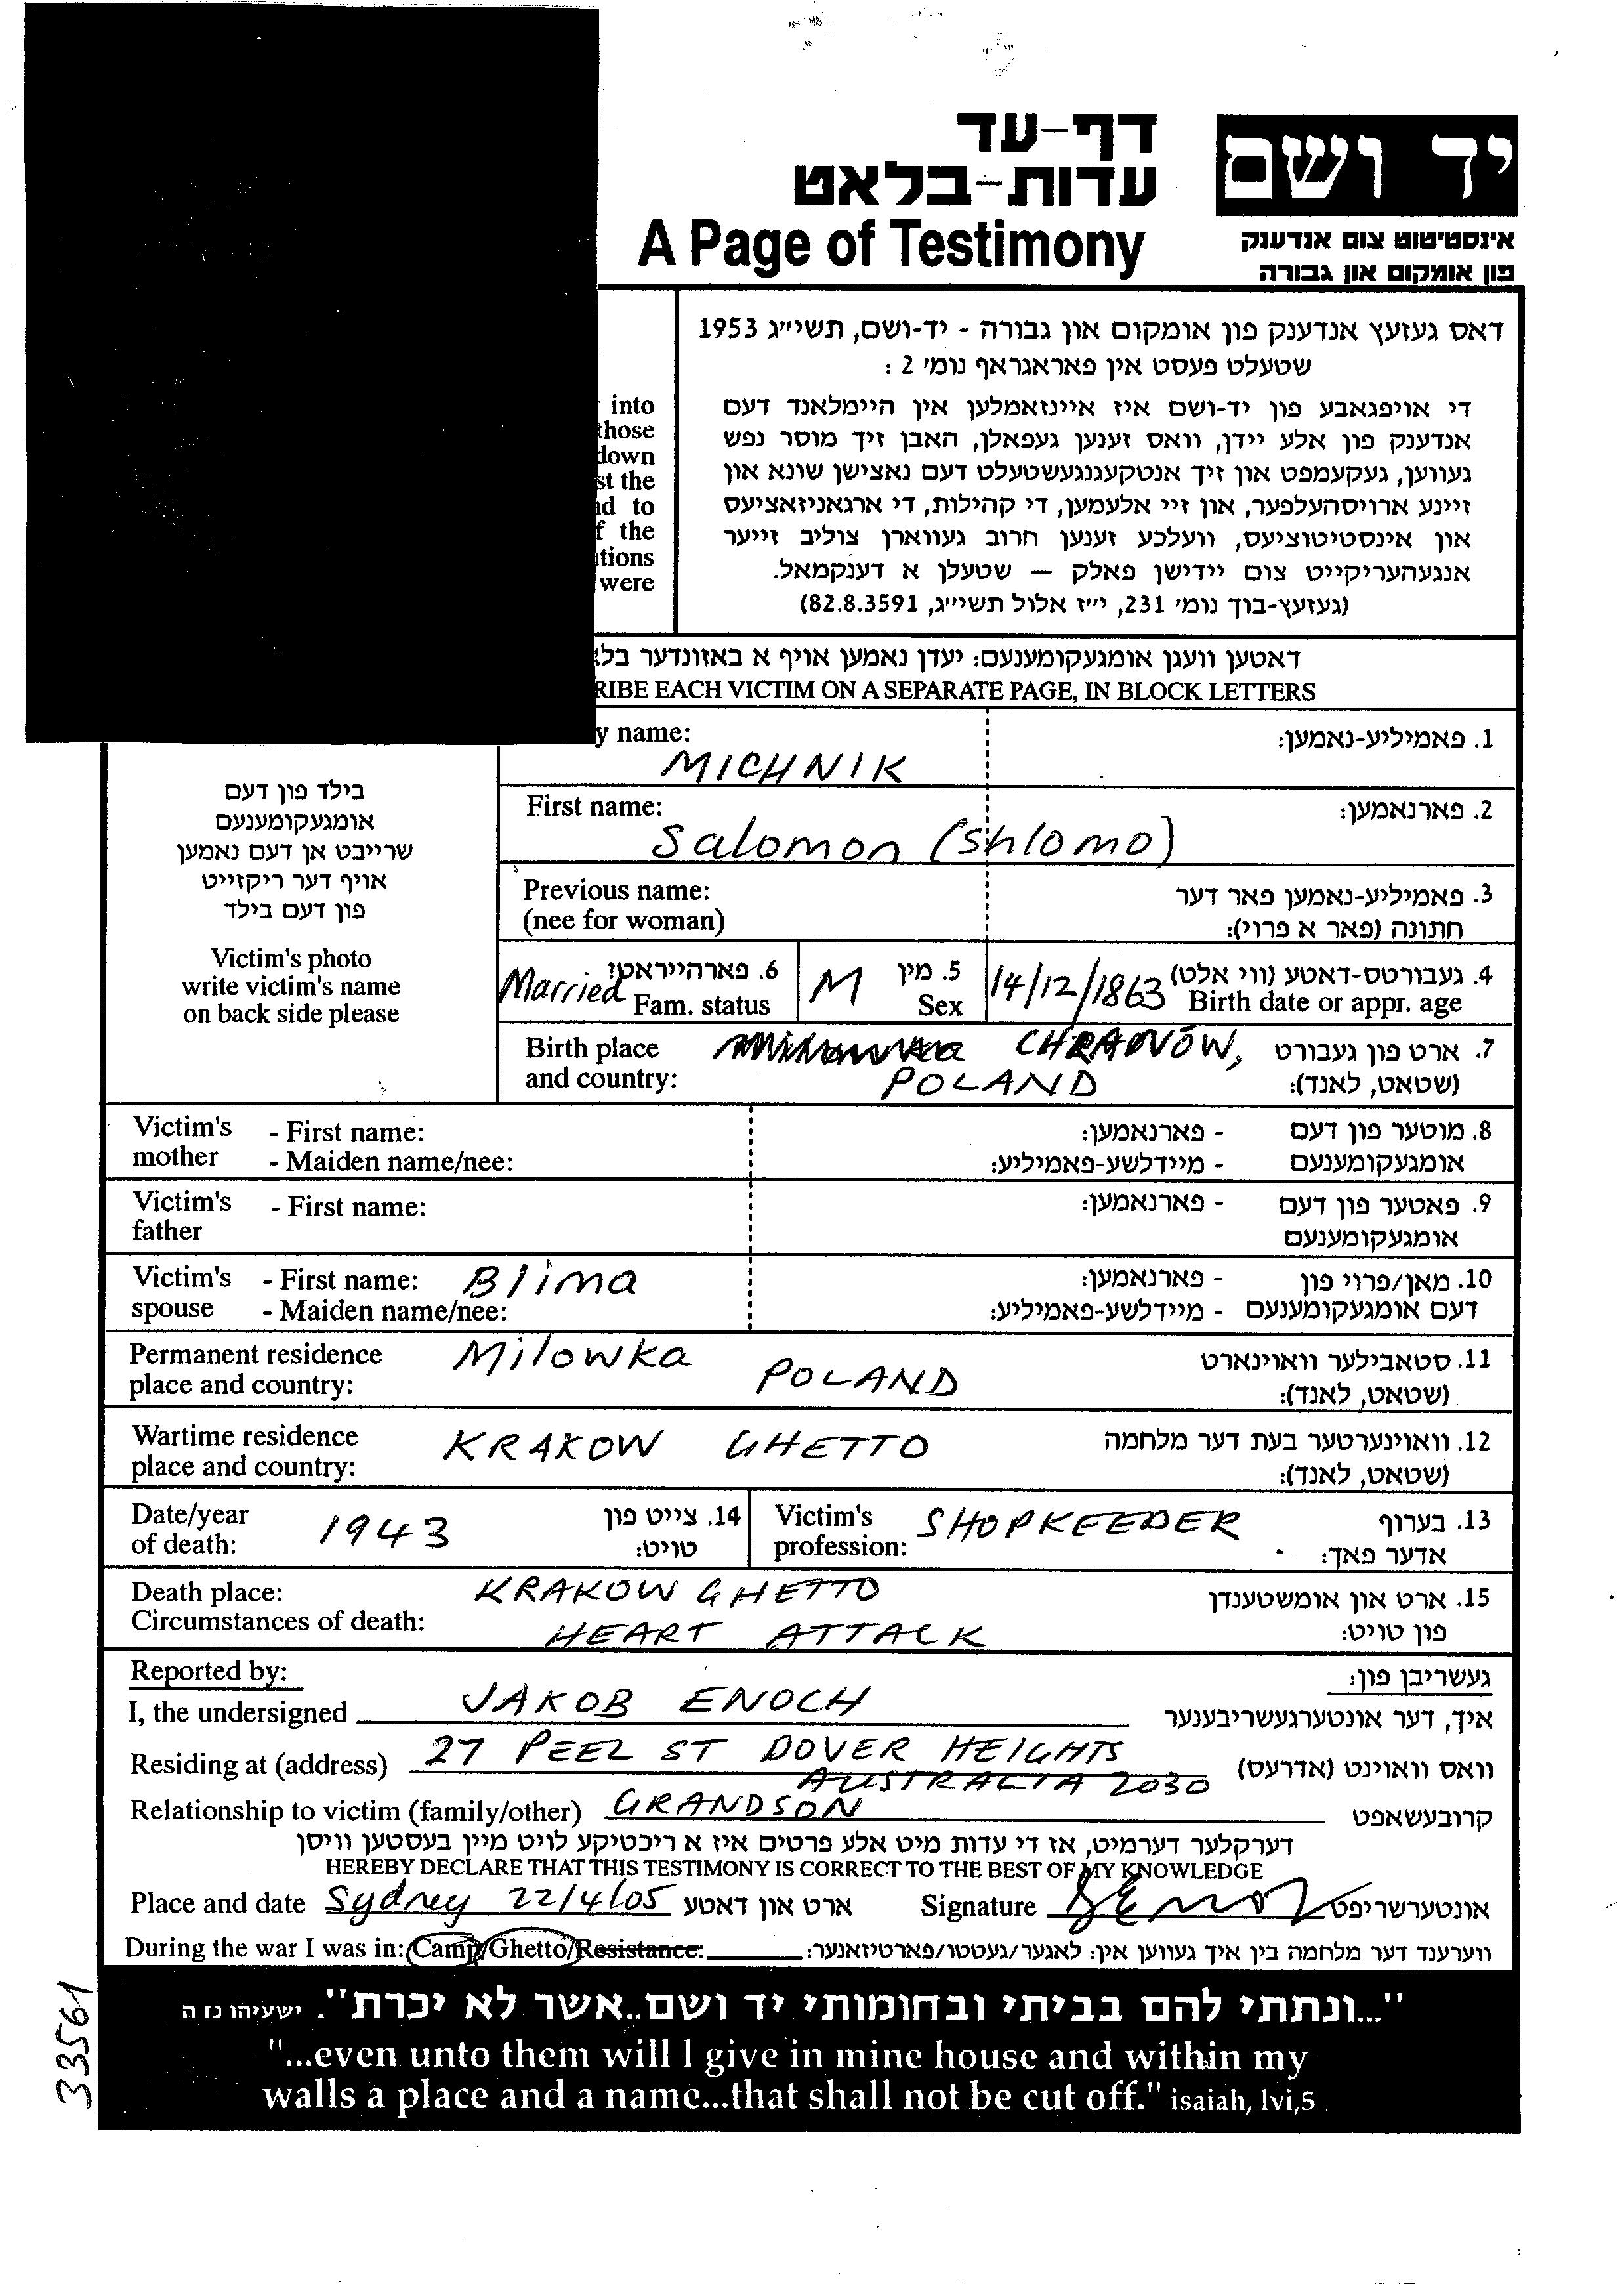 דף-עד
עדות-בלאט
A Page of Testimony
יד ושם
אינסטיטוט צום אנדענק
פון אומקום און גבורה
דאס געזעץ אנדענק פון אומקום און גבורה - יד-ושם, תשי״ג 1953
שטעלט פעסט אין פאראגראף נומ׳ 2 :
די אויפגאבע פון יד-ושם איז איינזאמלען אין היימלאנד דעם
אנדענק פון אלע יידן, וואס זענען געפאלן, האבן זיך מוסר נפש
געווען, געקעמפט און זיך אנטקעגנגעשטעלט דעם נאצישן שונא און
זיינע ארויסהעלפער, און זיי אלעמען, די קהילות, די ארגאניזאציעס
און אינסטיטוציעס, וועלכע זענען חרוב געווארן צוליב זייער
אנגעהעריקייט צום יידישן פאלק — שטעלן א דענקמאל.
(געזעץ-בוך נומ׳ 231, י״ז אלול תשי״ג, 82.8.3591)
into
those
down
st the
nd to
f the
tions
were
דאטען וועגן אומגעקומענעם: יעדן נאמען אויף א באזונדער בלא
RIBE EACH VICTIM ON A SEPARATE PAGE, IN BLOCK LETTERS
בילד פון דעם
אומגעקומענעם
שרייבט אן דעם נאמען
אויף דער ריקזייט
פון דעם בילד
Victim's photo
write victim's name
on back side please
y name: MICHNIK 1. פאמיליע-נאמען:
First name: Salomon (Shlomo) 2. פארנאמען:
Previous name: 3. פאמיליע-נאמען פאר דער
(nee for woman) חתונה (פאר א פרוי):
Married 6. פארהייראט? M 5. מין 14/12/1863 4. געבורטס-דאטע (ווי אלט)
Fam. status Sex Birth date or appr. age
Birth place CHRANÓW, 7. ארט פון געבורט
and country: POLAND (שטאט, לאנד):
Victim's - First name: - פארנאמען: 8. מוטער פון דעם
mother - Maiden name/nee: - מיידלשע-פאמיליע: אומגעקומענעם
Victim's - First name: - פארנאמען: 9. פאטער פון דעם
father אומגעקומענעם
Victim's - First name: Blima - פארנאמען: 10. מאן/פרוי פון
spouse - Maiden name/nee: - מיידלשע-פאמיליע: דעם אומגעקומענעם
Permanent residence Milowka 11. סטאבילער וואוינארט
place and country: POLAND (שטאט, לאנד):
Wartime residence KRAKOW GHETTO 12. וואוינערטער בעת דער מלחמה
place and country: (שטאט, לאנד):
Date/year 1943 14. צייט פון Victim's SHOPKEEPER 13. בערוף
of death: טויט: profession: אדער פאך:
Death place: KRAKOW GHETTO 15. ארט און אומשטענדן
Circumstances of death: HEART ATTACK פון טויט:
Reported by: געשריבן פון:
I, the undersigned JAKOB ENOCH איך, דער אונטערגעשריבענער
Residing at (address) 27 PEEL ST DOVER HEIGHTS וואס וואוינט (אדרעס)
AUSTRALIA 2030
Relationship to victim (family/other) GRANDSON קרובעשאפט
דערקלער דערמיט, אז די עדות מיט אלע פרטים איז א ריכטיקע לויט מיין בעסטען וויסן
HEREBY DECLARE THAT THIS TESTIMONY IS CORRECT TO THE BEST OF MY KNOWLEDGE
Place and date Sydney 22/4/05 ארט און דאטע Signature אונטערשריפט
During the war I was in: Camp/Ghetto/Resistance: ווערענד דער מלחמה בין איך געווען אין: לאגער/געטטו/פארטיזאנער:
"...ונתתי להם בביתי ובחומותי יד ושם..אשר לא יכרת". ישעיהו נז ה
"...even unto them will I give in mine house and within my
walls a place and a name...that shall not be cut off." isaiah, lvi,5
33561